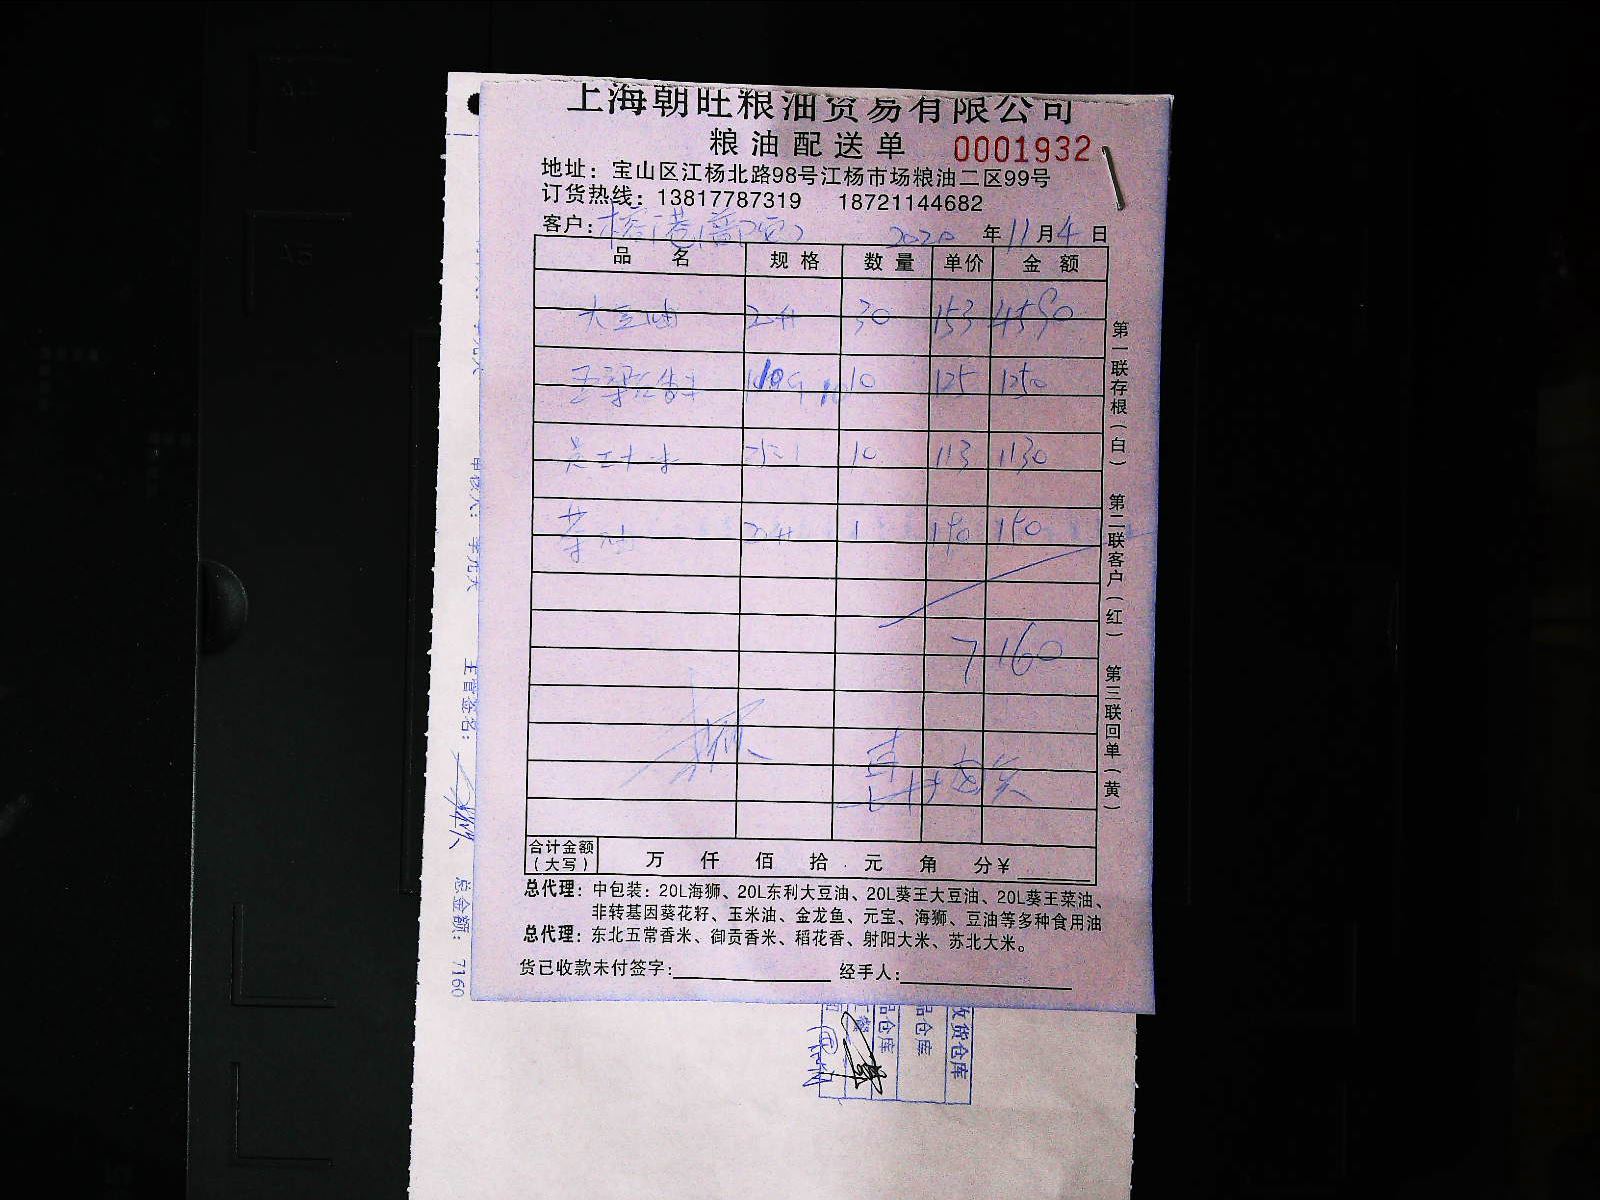 上海朝旺粮油贸易有限公司
粮油配送单 0001932
地址：宝山区江杨北路98号江杨市场粮油二区99号
订货热线：13817787319 18721144682
客户： 2020 年 11 月 4 日
品 名 规 格 数 量 单价 金 额
大豆油 20升 30 153 4590
10 125 1250
10 113 1130
菜油 20升 1 190 190
7160
合计金额（大写） 万 仟 佰 拾 元 角 分¥
总代理：中包装：20L海狮、20L东利大豆油、20L葵王大豆油、20L葵王菜油、
非转基因葵花籽、玉米油、金龙鱼、元宝、海狮、豆油等多种食用油
总代理：东北五常香米、御贡香米、稻花香、射阳大米、苏北大米。
货已收款未付签字： 经手人：
第一联存根（白） 第二联客户（红） 第三联回单（黄）
主管签名：
总金额： 7160
收货仓库
品仓库
品仓库